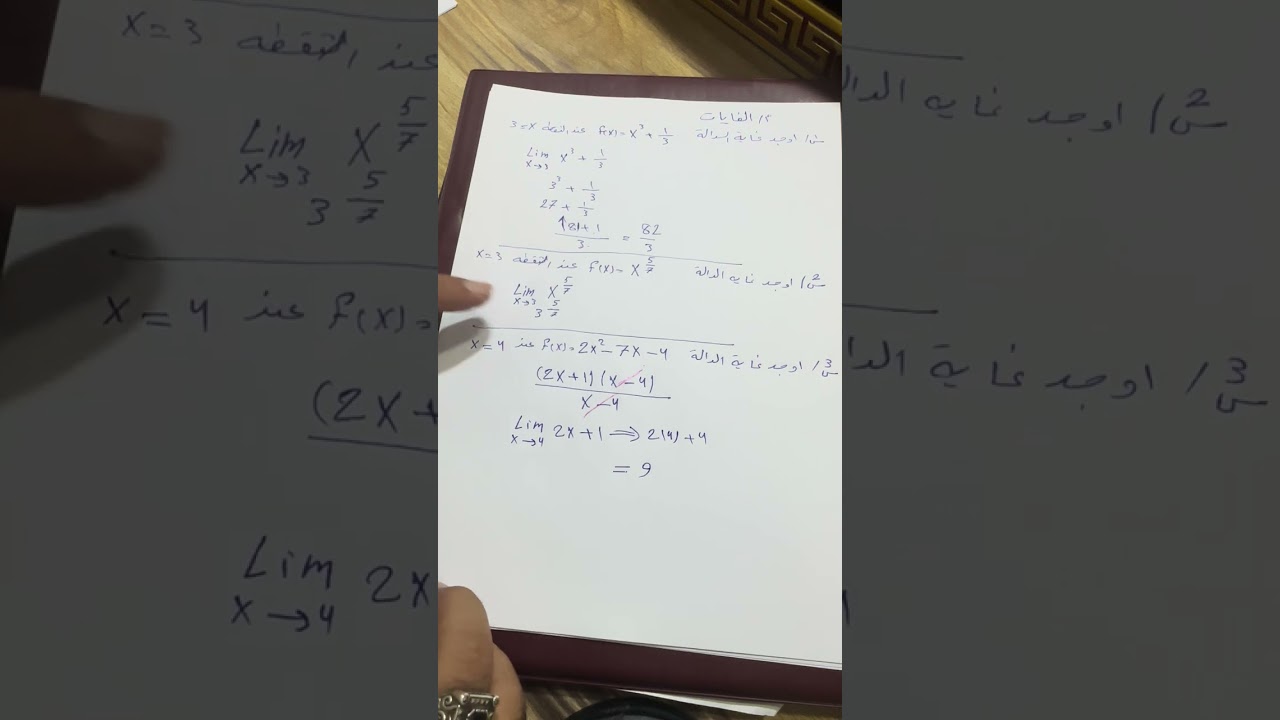 م/ الغايات
س1/ اوجد غاية الدالة f(x)= x³ + 1/3 عند النقطة x=3
Lim x→3 x³ + 1/3
3³ + 1/3
27 + 1/3
(81+1)/3 = 82/3
س2/ اوجد غاية الدالة f(x)= x^(5/7) عند النقطة x=3
Lim x→3 x^(5/7)
3^(5/7)
س3/ اوجد غاية الدالة f(x)= 2x² - 7x - 4 عند x=4
(2x+1)(x-4)
x-4
Lim x→4 2x+1 ⇒ 2(4)+4
= 9